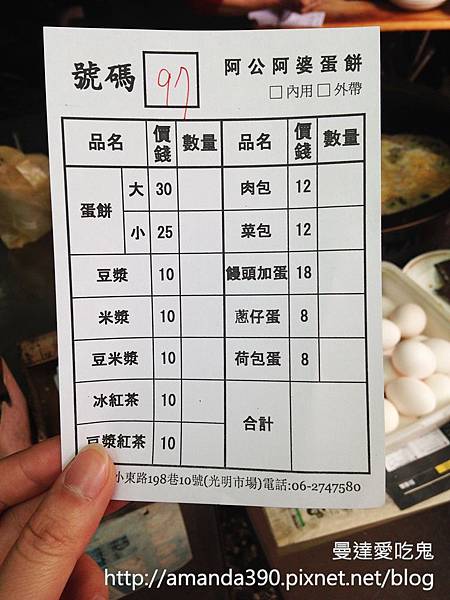 號碼 97 阿公阿婆蛋餅
□內用□外帶
品名 價錢 數量 品名 價錢 數量
蛋餅 大 30 肉包 12
小 25 菜包 12
豆漿 10 饅頭加蛋 18
米漿 10 蔥仔蛋 8
豆米漿 10 荷包蛋 8
冰紅茶 10 合計
豆漿紅茶 10
小東路198巷10號(光明市場)電話:06-2747580
曼達愛吃鬼
http://amanda390.pixnet.net/blog